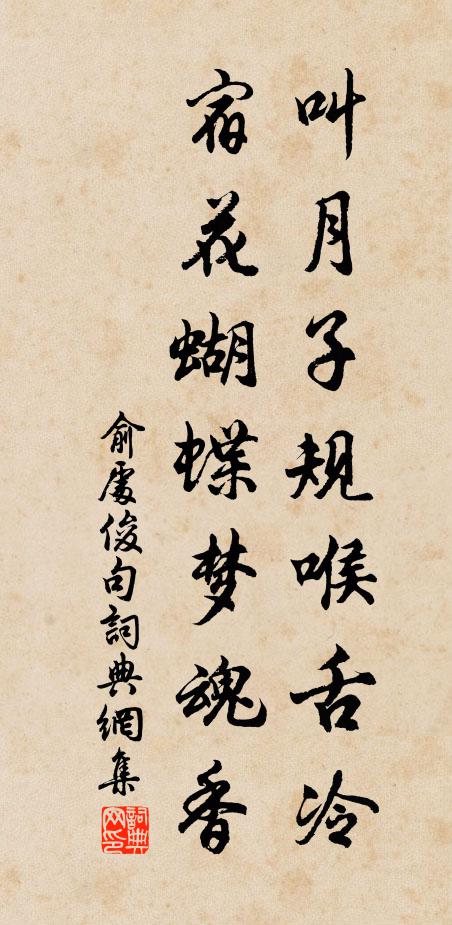 叫月子规喉舌冷
宿花蝴蝶梦魂香
俞處俊句詞典網集
詞典网印